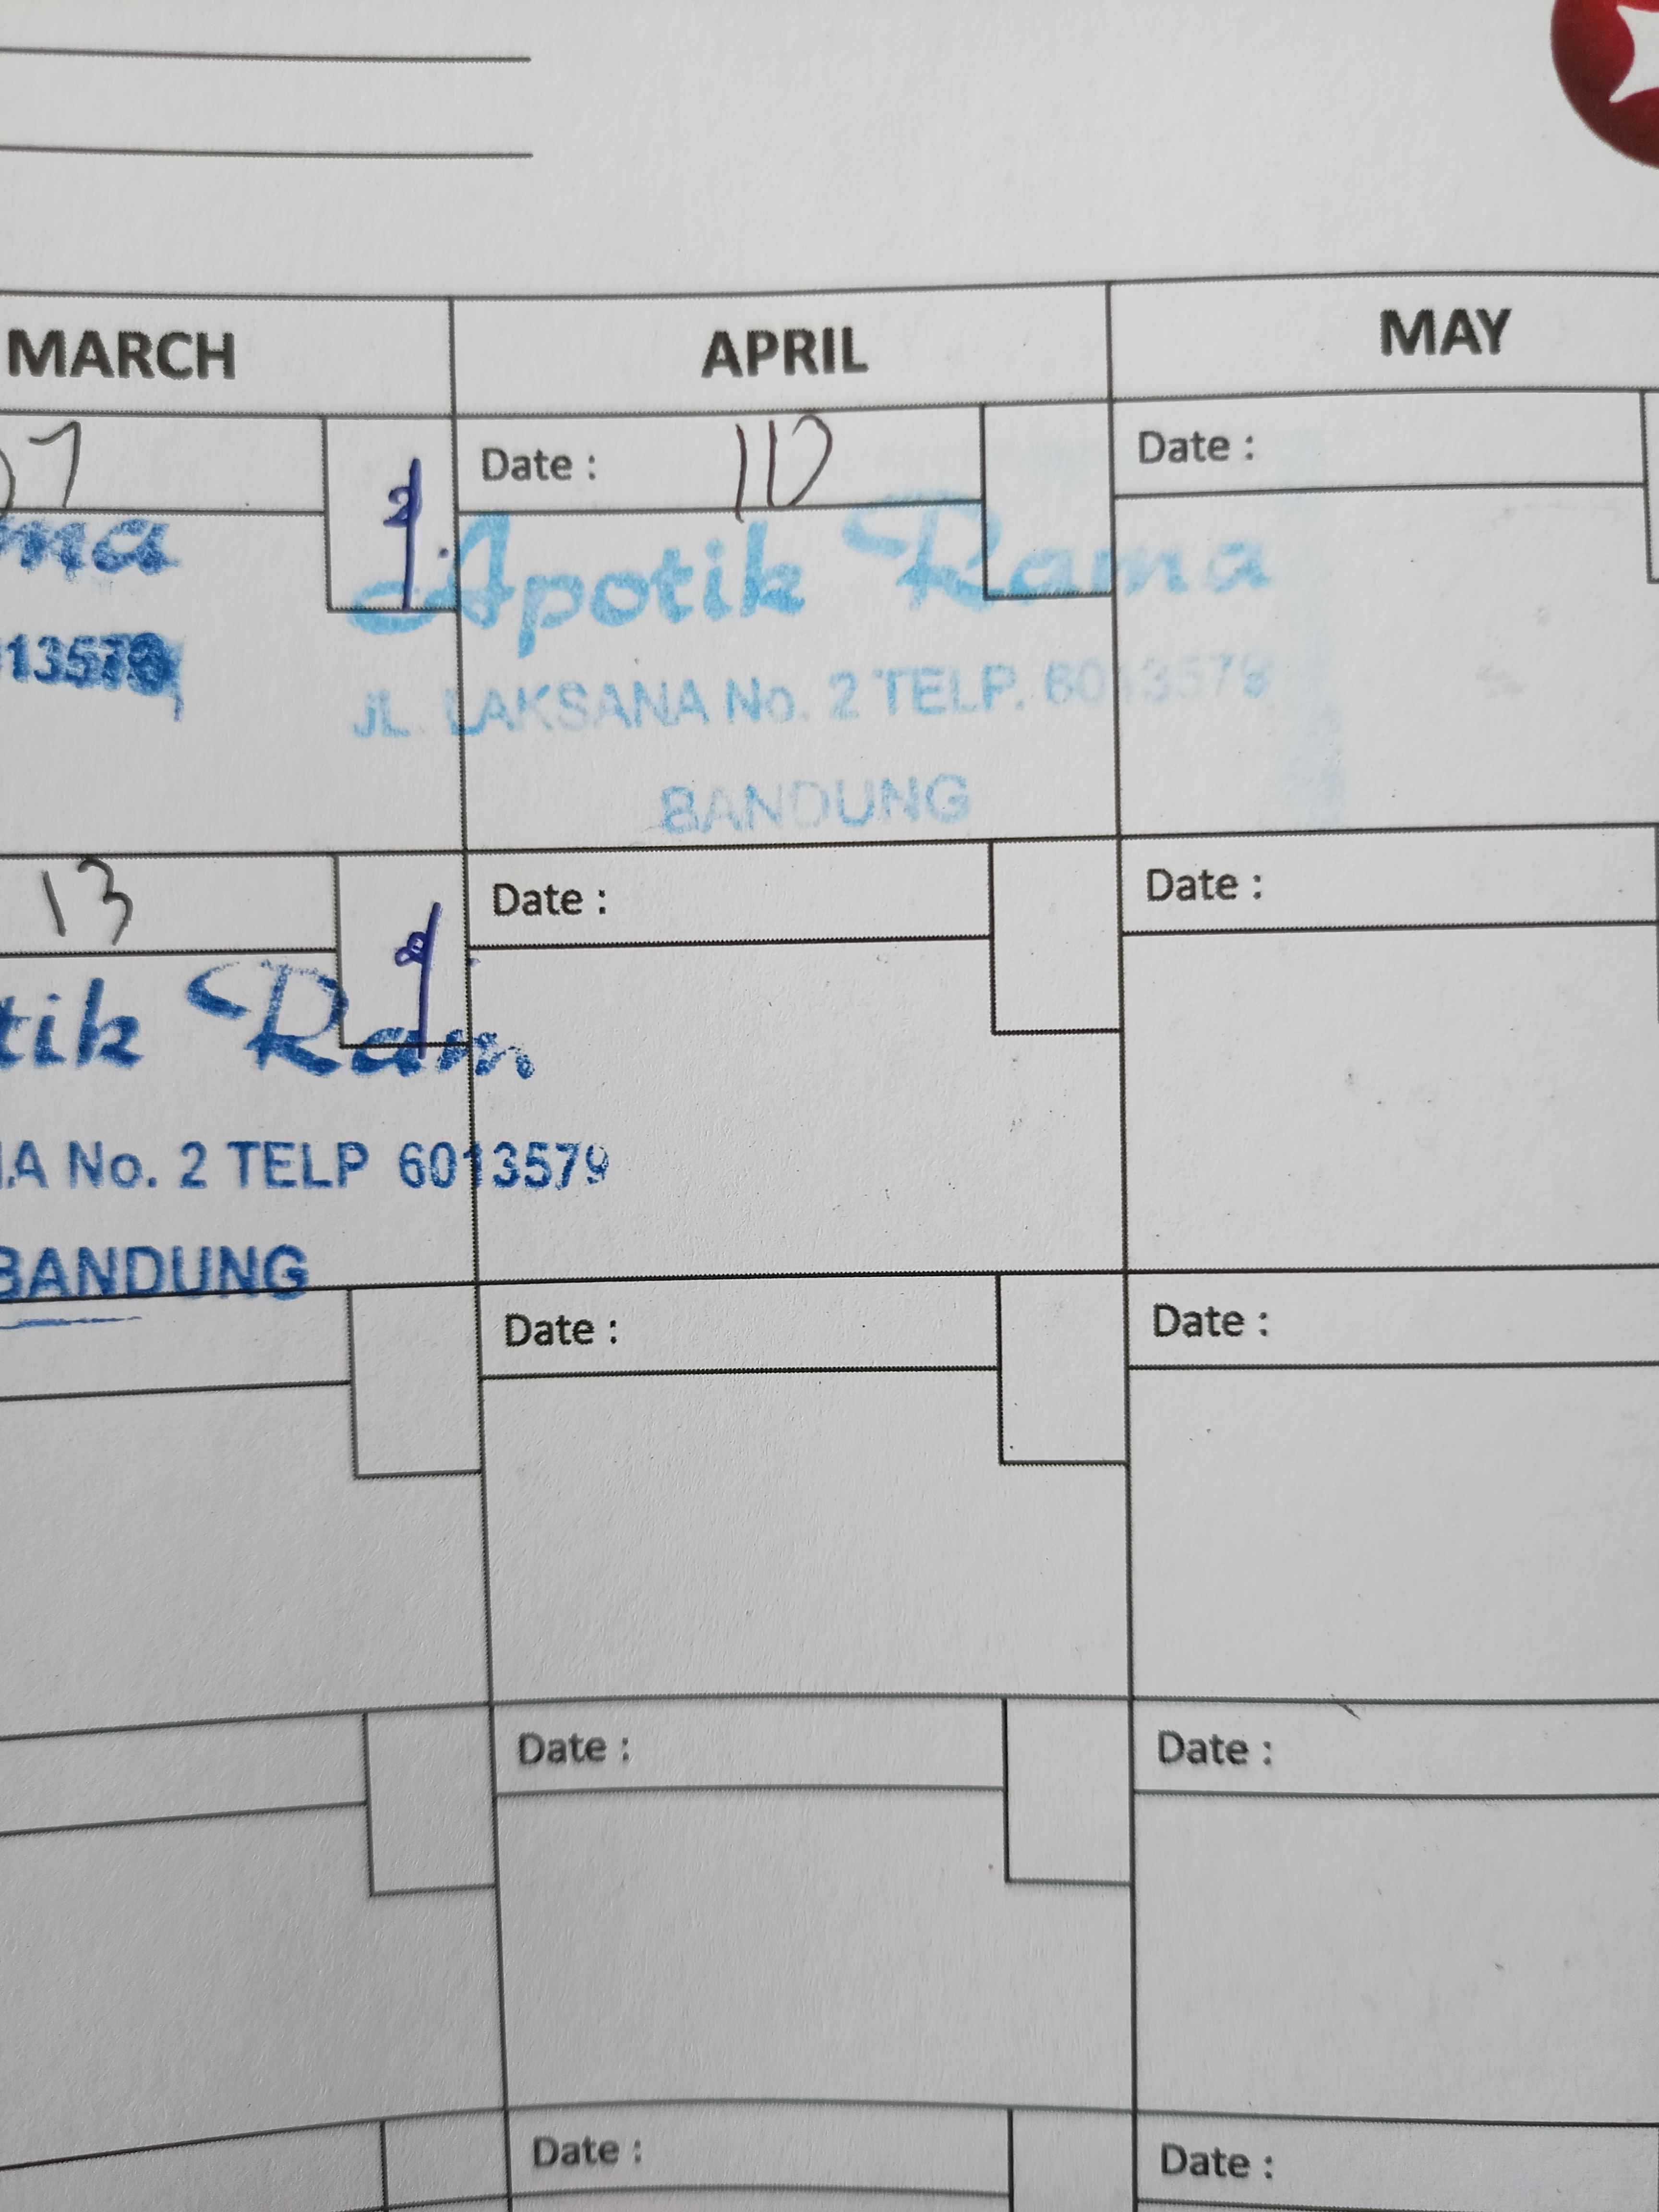 MARCH APRIL MAY
07 Date : 10 Date :
ma Apotik Rama
13579 JL. LAKSANA No. 2 TELP. 6013579
BANDUNG
13 Date : Date :
tik Ram
A No. 2 TELP 6013579
BANDUNG
Date : Date :
Date : Date :
Date : Date :